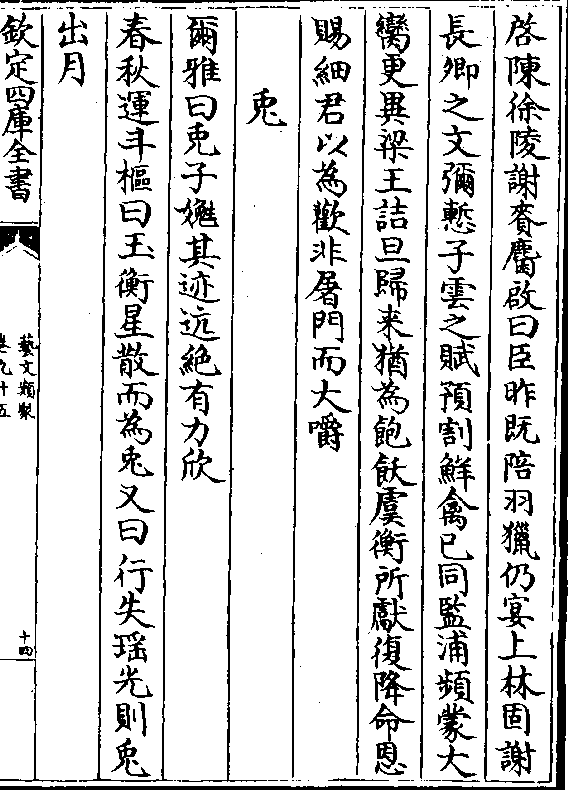 啓陳徐陵謝賚麕啟曰臣昨既陪羽獵仍宴上林固謝
長卿之文彌慙子雲之賦預割鮮禽已同監浦頻蒙大
臠更異梁王詰旦歸来猶為飽飫虞衡所獻復降命恩
賜細君以為歡非屠門而大嚼
兎
爾雅曰兎子嬎其迹迒絕有力欣
春秋運斗樞曰玉衡星散而為兎又曰行失瑶光則兎
出月
欽定四庫全書
藝文類聚
卷九十五
十四